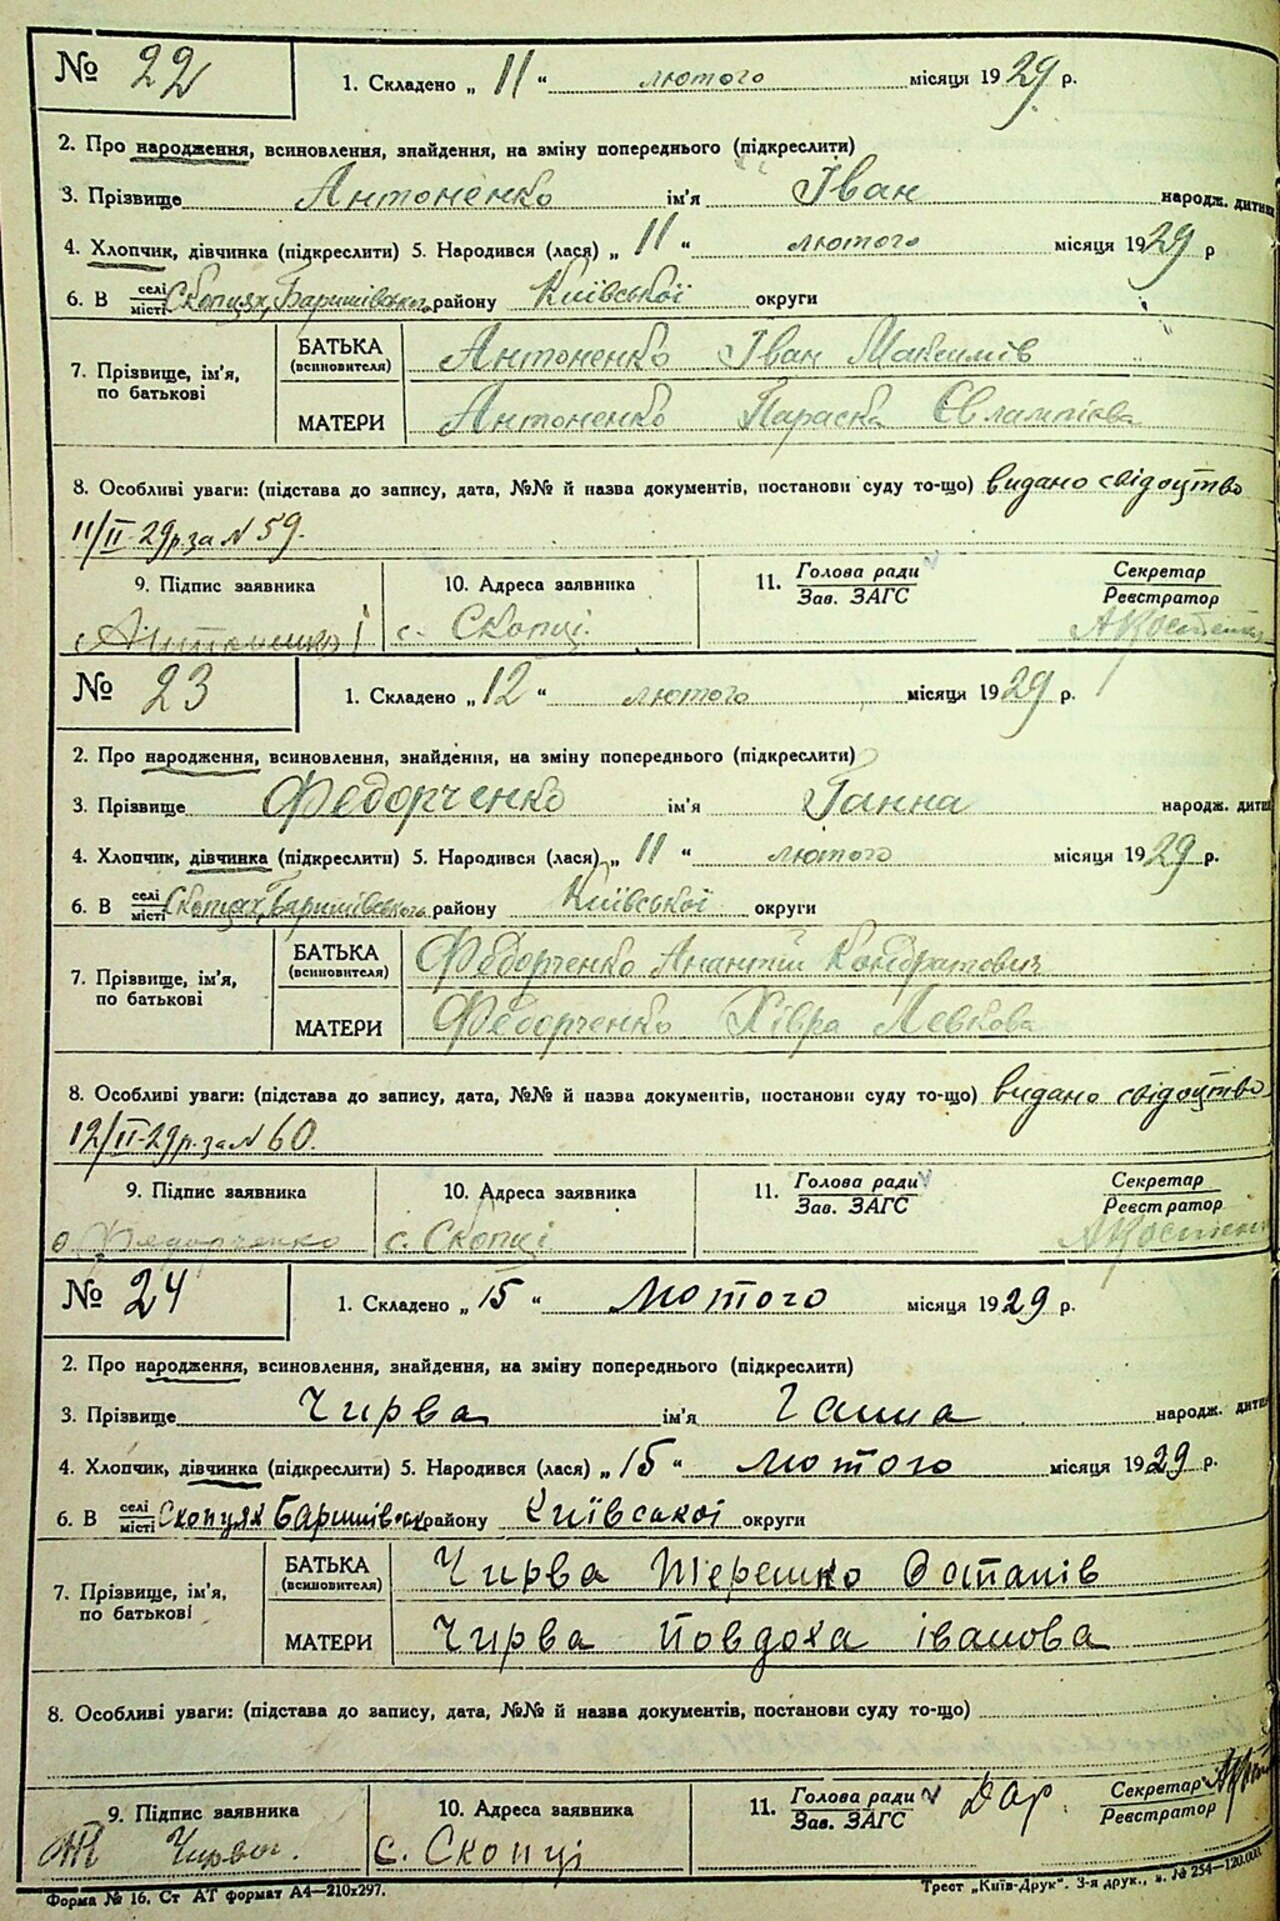 № 22 1. Складено „ 11 “ лютого місяця 1929 р.
2. Про народження, всиновлення, знайдення, на зміну попереднього (підкреслити)
3. Прізвище Антоненко ім'я Іван народж. дитин
4. Хлопчик, дівчинка (підкреслити) 5. Народився (лася) „ 11 “ лютого місяця 1929 р
6. В селі/місті Скопцях, Баришівського району Київської округи
7. Прізвище, ім'я, по батькові
БАТЬКА (всиновителя) Антоненко Іван Максимів
МАТЕРИ Антоненко Параска Євлампієва
8. Особливі уваги: (підстава до запису, дата, №№ й назва документів, постанови суду то-що) видано свідоцтво
11/II-29р. за N 59.
9. Підпис заявника 10. Адреса заявника 11. Голова ради/Зав. ЗАГС Секретар/Реєстратор
Антоненко І с. Скопці.
№ 23 1. Складено „ 12 “ лютого місяця 1929 р.
2. Про народження, всиновлення, знайдення, на зміну попереднього (підкреслити)
3. Прізвище Федорченко ім'я Ганна народж. дити
4. Хлопчик, дівчинка (підкреслити) 5. Народився (лася) „ 11 “ лютого місяця 1929 р.
6. В селі/місті Скопцях, Баришівського району Київської округи
7. Прізвище, ім'я, по батькові
БАТЬКА (всиновителя) Федорченко Анантій Кондратович
МАТЕРИ Федорченко Хівря Левкова
8. Особливі уваги: (підстава до запису, дата, №№ й назва документів, постанови суду то-що) видано свідоцтво
12/II-29р. за N 60.
9. Підпис заявника 10. Адреса заявника 11. Голова ради/Зав. ЗАГС Секретар/Реєстратор
Федорченко с. Скопці
№ 24 1. Складено „ 15 “ лютого місяця 1929 р.
2. Про народження, всиновлення, знайдення, на зміну попереднього (підкреслити)
3. Прізвище Чирва ім'я Ганна народж. дити
4. Хлопчик, дівчинка (підкреслити) 5. Народився (лася) „ 15 “ лютого місяця 1929 р.
6. В селі/місті Скопцях Баришівськ району Київської округи
7. Прізвище, ім'я, по батькові
БАТЬКА (всиновителя) Чирва Терешко Остапів
МАТЕРИ Чирва Повдоха іванова
8. Особливі уваги: (підстава до запису, дата, №№ й назва документів, постанови суду то-що)
9. Підпис заявника 10. Адреса заявника 11. Голова ради/Зав. ЗАГС Секретар/Реєстратор
Т Чирва. с. Скопці
Форма № 16. Ст АТ формат А4—210х297. Трест „Київ-Друк“. 3-я друк., № 254—120.000